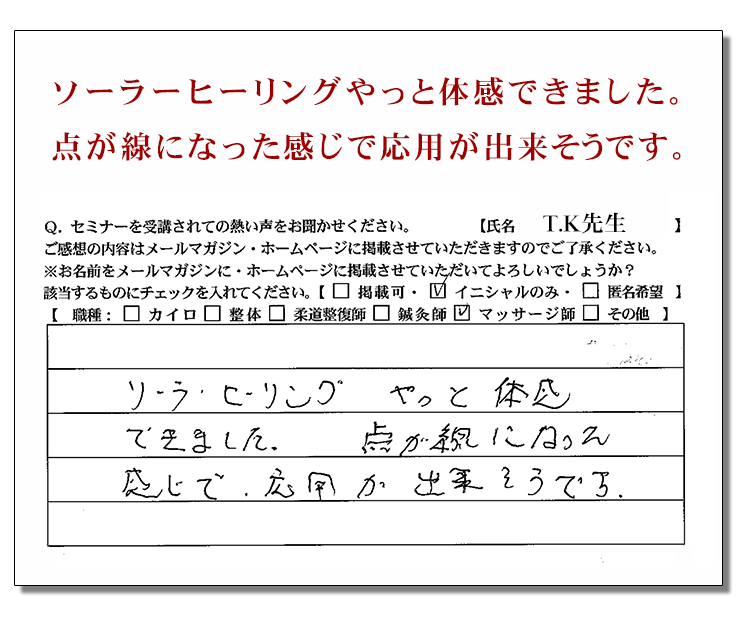 ソーラーヒーリングやっと体感できました。
点が線になった感じで応用が出来そうです。
Q. セミナーを受講されての熱い声をお聞かせください。 【氏名 T.K先生 】
ご感想の内容はメールマガジン・ホームページに掲載させていただきますのでご了承ください。
※お名前をメールマガジンに・ホームページに掲載させていただいてよろしいでしょうか？
該当するものにチェックを入れてください。【 □ 掲載可・ ☑ イニシャルのみ・ □ 匿名希望 】
【 職種： □ カイロ □ 整体 □ 柔道整復師 □ 鍼灸師 ☑ マッサージ師 □ その他 】
ソーラ・ヒーリング やっと 体感
できました. 点が線になった
感じで、応用が 出来そうです.